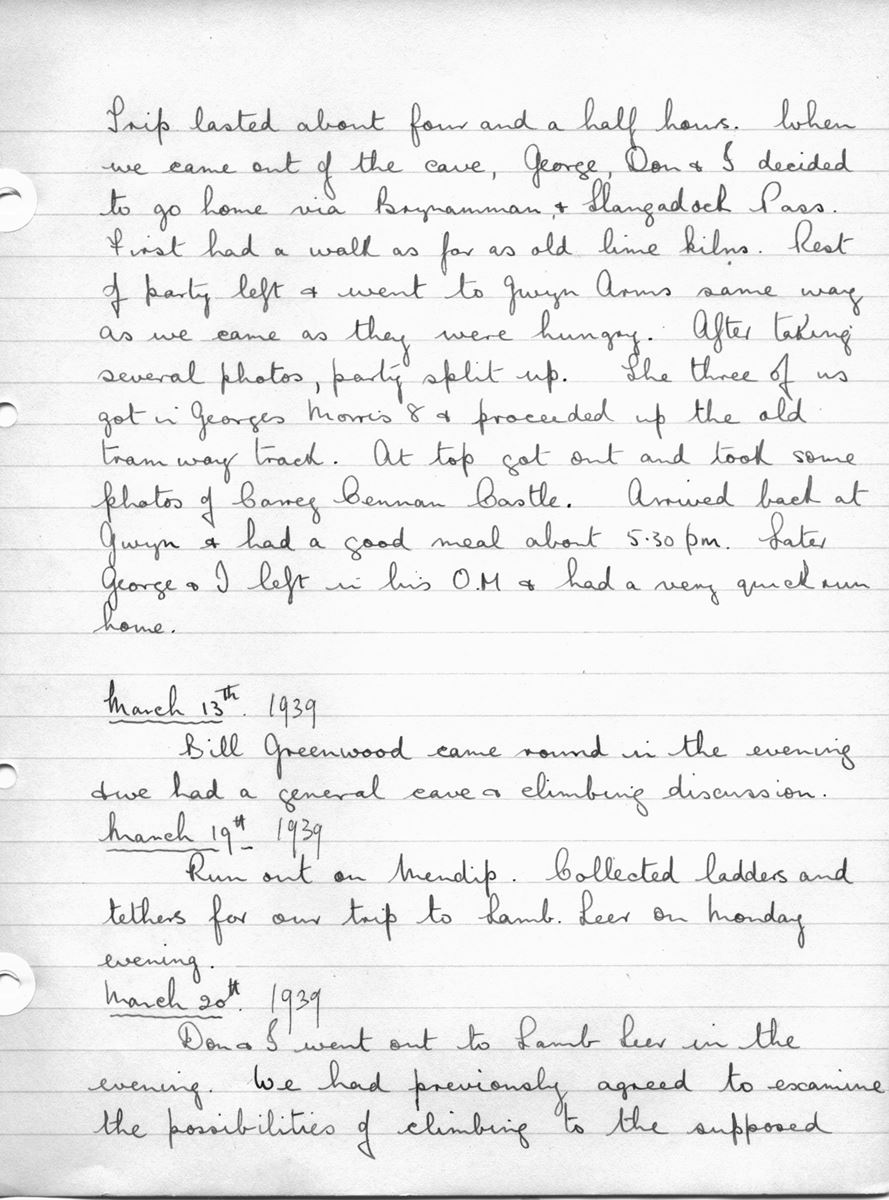 Trip lasted about four and a half hours. When
we came out of the cave, George, Don & I decided
to go home via Brynamman, & Llangadock Pass.
First had a walk as far as old lime kilns. Rest
of party left & went to Gwyn Arms same way
as we came as they were hungry. After taking
several photos, party split up. The three of us
got in Georges Morris 8 & proceeded up the old
tramway track. At top got out and took some
photos of Carreg Cennan Castle. Arrived back at
Gwyn & had a good meal about 5.30 pm. Later
George & I left in his O.M & had a very quick run
home.
March 13th. 1939
Bill Greenwood came round in the evening
& we had a general cave & climbing discussion.
March 19th 1939
Run out on Mendip. Collected ladders and
tethers for our trip to Lamb. Leer on Monday
evening.
March 20th. 1939
Don & I went out to Lamb Leer in the
evening. We had previously agreed to examine
the possibilities of climbing to the supposed